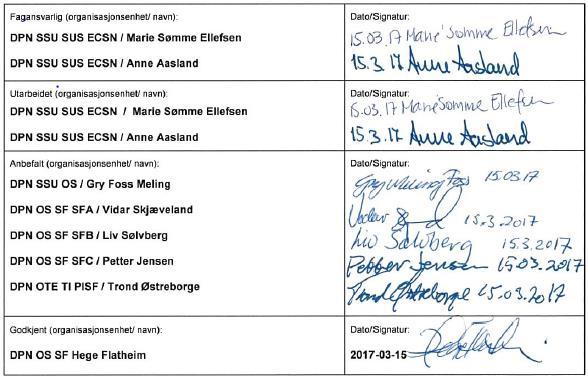 Fagansvarlig (organisasjonsenhet/ navn): Dato/Signatur:
DPN SSU SUS ECSN / Marie Sømme Ellefsen 15.03.17 Marie Sømme Ellefsen
DPN SSU SUS ECSN / Anne Aasland 15.3.17 Anne Aasland
Utarbeidet (organisasjonsenhet/ navn): Dato/Signatur:
DPN SSU SUS ECSN / Marie Sømme Ellefsen 15.03.17 Marie Sømme Ellefsen
DPN SSU SUS ECSN / Anne Aasland 15.3.17 Anne Aasland
Anbefalt (organisasjonsenhet/ navn): Dato/Signatur:
DPN SSU OS / Gry Foss Meling Gry Meling Foss 15.03.17
DPN OS SF SFA / Vidar Skjæveland Vidar 15.3.2017
DPN OS SF SFB / Liv Sølvberg Liv Sølvberg 15.3.2017
DPN OS SF SFC / Petter Jensen Petter Jensen 15.03.2017
DPN OTE TI PISF / Trond Østreborge Trond Østreborge 15.03.2017
Godkjent (organisasjonsenhet/ navn): Dato/Signatur:
DPN OS SF Hege Flatheim 2017-03-15